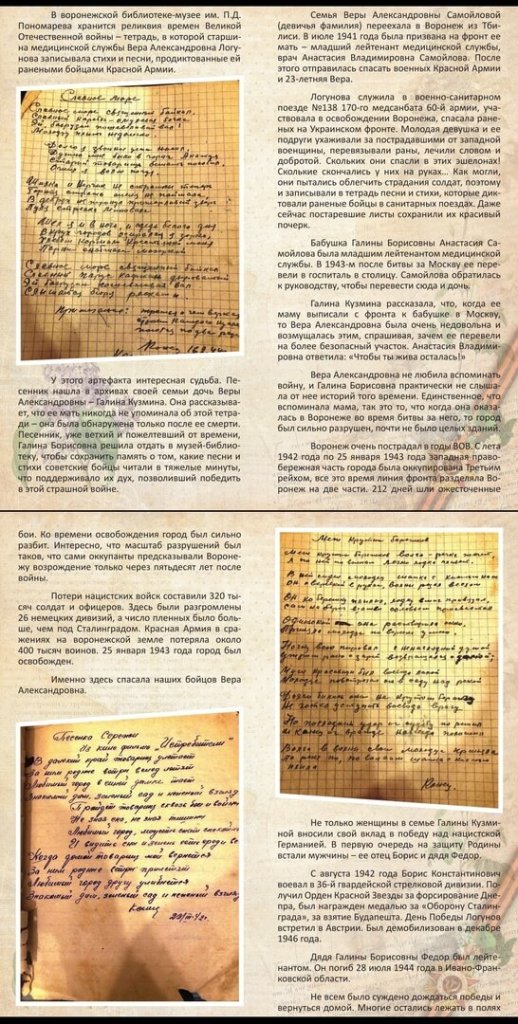 В воронежской библиотеке-музее им. П.Д.
Пономарева хранится реликвия времен Великой
Отечественной войны – тетрадь, в которой старши-
на медицинской службы Вера Александровна Логу-
нова записывала стихи и песни, продиктованные ей
ранеными бойцами Красной Армии.
Славное море
Славное море священный Байкал,
Эй, баргузин пошевеливай вал!
Молодцу плыть недалеко.
Славное море священный Байкал
Конец
У этого артефакта интересная судьба. Пе-
сенник нашла в архивах своей семьи дочь Веры
Александровны – Галина Кузмина. Она рассказыва-
ет, что ее мать никогда не упоминала об этой тетра-
ди – она была обнаружена только после ее смерти.
Песенник, уже ветхий и пожелтевший от времени,
Галина Борисовна решила отдать в музей-библио-
теку, чтобы сохранить память о том, какие песни и
стихи советские бойцы читали в тяжелые минуты,
что поддерживало их дух, позволивший победить
в этой страшной войне.
Семья Веры Александровны Самойловой
(девичья фамилия) переехала в Воронеж из Тби-
лиси. В июле 1941 года была призвана на фронт ее
мать – младший лейтенант медицинской службы,
врач Анастасия Владимировна Самойлова. После
этого отправилась спасать военных Красной Армии
и 23-летняя Вера.
Логунова служила в военно-санитарном
поезде №138 170-го медсанбата 60-й армии, уча-
ствовала в освобождении Воронежа, спасала ране-
ных на Украинском фронте. Молодая девушка и ее
подруги ухаживали за пострадавшими от западной
военщины, перевязывали раны, лечили словом и
добротой. Скольких они спасли в этих эшелонах!
Сколькие скончались у них на руках... Как могли,
они пытались облегчить страдания солдат, поэтому
и записывали в тетрадь песни и стихи, которые дик-
товали раненые бойцы в санитарных поездах. Даже
сейчас постаревшие листы сохранили их красивый
почерк.
Бабушка Галины Борисовны Анастасия Са-
мойлова была младшим лейтенантом медицинской
службы. В 1943-м после битвы за Москву ее пере-
вели в госпиталь в столицу. Самойлова обратилась
к руководству, чтобы перевести сюда и дочь.
Галина Кузмина рассказала, что, когда ее
маму выписали с фронта к бабушке в Москву,
то Вера Александровна была очень недовольна и
возмущалась этим, спрашивая, зачем ее перевели
на более безопасный участок. Анастасия Владими-
ровна ответила: «Чтобы ты жива осталась!»
Вера Александровна не любила вспоминать
войну, и Галина Борисовна практически не слыша-
ла от нее историй того времени. Единственное, что
вспоминала мама, так это то, что когда она оказа-
лась в Воронеже во время битвы за него, то город
был сильно разрушен, почти не было целых зданий.
Воронеж очень пострадал в годы ВОВ. С лета
1942 года по 25 января 1943 года западная право-
бережная часть города была оккупирована Третьим
рейхом, все это время линия фронта разделяла Во-
ронеж на две части. 212 дней шли ожесточенные
бои. Ко времени освобождения город был сильно
разбит. Интересно, что масштаб разрушений был
таков, что сами оккупанты предсказывали Ворон-
жу возрождение только через пятьдесят лет после
войны.
Потери нацистских войск составили 320 ты-
сяч солдат и офицеров. Здесь были разгромлены
26 немецких дивизий, а число пленных было боль-
ше, чем под Сталинградом. Красная Армия в сра-
жениях на воронежской земле потеряла около
400 тысяч воинов. 25 января 1943 года город был
освобожден.
Именно здесь спасала наших бойцов Вера
Александровна.
Песенка Сережки
Из кино фильма „Истребители"
В далекий край товарищ улетает
За ним родные ветры вслед летят
Любимый город в синей дымке тает
Знакомый дом, зеленый сад и нежный взгляд
Любимый город, может спать спокойно
Когда домой товарищ мой вернется
За ним родные ветры прилетят
Любимый город другу улыбнется
Знакомый дом, зеленый сад и нежный взгляд
Конец
Меж крутых бережков
Меж крутых бережков Волга – речка течет,
Конец.
Не только женщины в семье Галины Кузми-
ной вносили свой вклад в победу над нацистской
Германией. В первую очередь на защиту Родины
встали мужчины – ее отец Борис и дядя Федор.
С августа 1942 года Борис Константинович
воевал в 36-й гвардейской стрелковой дивизии. По-
лучил Орден Красной Звезды за форсирование Дне-
пра, был награжден медалью за «Оборону Сталин-
града», за взятие Будапешта. День Победы Логунов
встретил в Австрии. Был демобилизован в декабре
1946 года.
Дядя Галины Борисовны Федор был лейте-
нантом. Он погиб 28 июля 1944 года в Ивано-Фран-
ковской области.
Не всем было суждено дождаться победы и
вернуться домой. Многие остались лежать в полях